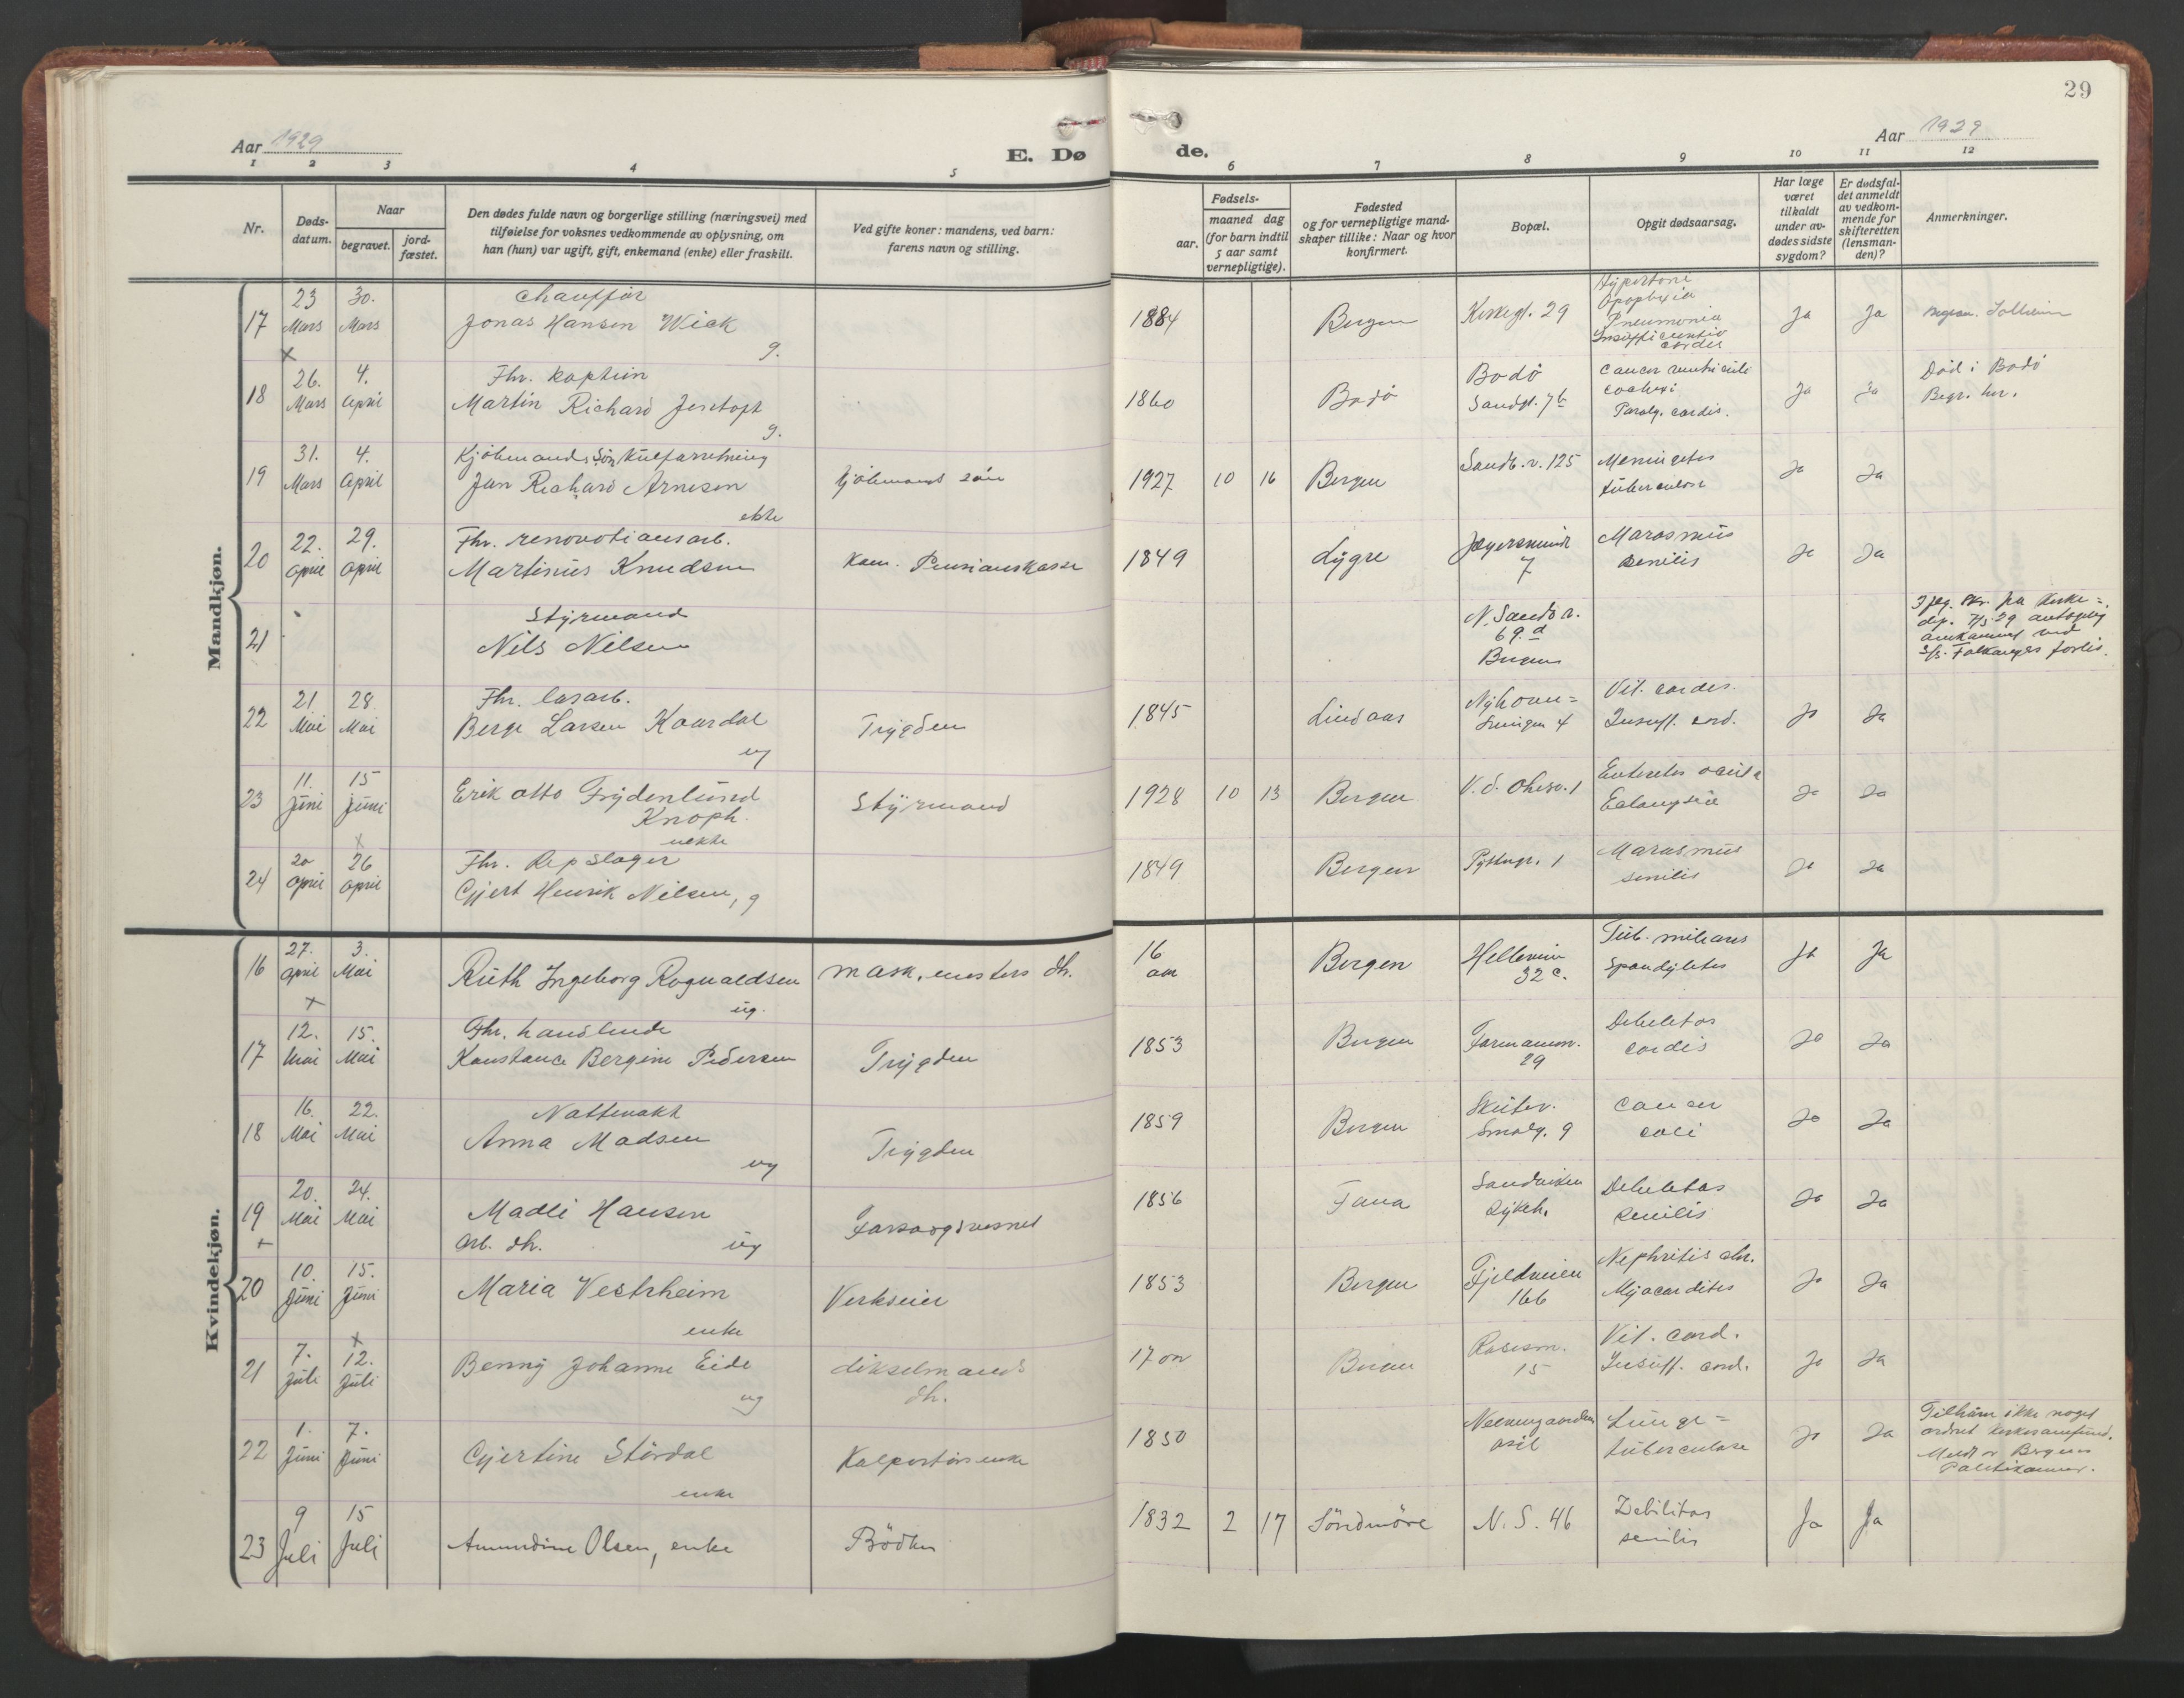 29
Aar 1929
E. Dø
de.
Aar 1929
1 2 3 4 5 6 7 8 9 10 11 12
Nr.
Døds-
datum.
Naar
begravet.
jord-
fæstet.
Den dødes fulde navn og borgerlige stilling (næringsvei) med
tilføielse for voksnes vedkommende av oplysning, om
han (hun) var ugift, gift, enkemand (enke) eller fraskilt.
Ved gifte koner: mandens, ved barn:
farens navn og stilling.
Fødsels-
aar.
maaned dag
(for barn indtil
5 aar samt
vernepligtige).
Fødested
og for vernepligtige mand-
skaper tillike: Naar og hvor
konfirmert.
Bopæl.
Opgit dødsaarsag.
Har læge
været
tilkaldt
under av-
dødes sidste
sygdom?
Er dødsfal-
det anmeldt
av vedkom-
mende for
skifteretten
(lensman-
den)?
Anmerkninger.
Mandkjøn.
17 23 Mars 30. Mars
Chauffør
Jonas Hansen Wick
g.
1884 Bergen Kirkegt. 29
Hypertoni
Apoplexia
Pneumonia
Insufficientio
cordis
Ja Ja
18 26. Mars 4. April
Fhv. kaptein
Martin Richard Jentoft
g.
1860 Bodö
Bodö
Sandgt. 7b
Cancer ventriculi
cachexi
Paraly. cordis.
Ja Ja
Död i Bodö
Begr. her.
19 31. Mars 4. April
Kjöbmands sön
Jan Richard Arnesen
ekte
Kjöbmands sön
1927 10 16 Bergen Sandv.v. 125
Meningitis
tuberculose
Ja Ja
20 22. April 29. April
Fhv. renovationsarb.
Martinus Knudsen
Kom. Pensionskasse
1849 Lygre
7
Marasmus
senilis
Ja Ja
21
Styrmand
Nils Nilsen
N. Sandv.
69.d
Bergen
22 21. Mai 28. Mai
Fhv. løsarb.
Berge Larsen Kaardal
ug
Trygden
1845 Lindaas
Vit. cordis.
Insuff. cord.
Ja Ja
23 11. Juni 15 Juni
Erik Otto Frydenlund
Knoph.
uekte
Styrmand
1928 10 13 Bergen
Enteritis acuta
Eclampsia
Ja Ja
24 20 April 26 April
Fhv. Repslager
Gjert Henrik Nilsen, g
1849 Bergen
Marasmus
senilis
Ja Ja
Kvindekjøn.
16 27. April 3. Mai
Ruth Ingeborg Rognaldsen
ug.
mask.mesters dt.
16
Bergen
Helleveien
32 c.
Tub. miliaris
Spondylitis
Ja Ja
17 12. Mai 15. Mai
Fhv. handlende
Konstance Bergine Pedersen
Trygden
1853 Bergen
Formannsv.
29
Debilitas
cordis
Ja Ja
18 16. Mai 22. Mai
Nattevakt
Anna Madsen
ug
Trygden
1859 Bergen
Skutev.
Smalg. 9
Cancer
coli
Ja Ja
19 20. Mai 24. Mai
Madli Hansen
Arb. dt. ug
Forsorgsvesnet
1856 Fana
Sandviken
Sykeh.
Debilitas
senilis
Ja Ja
20 10. Juni 15. Juni
Maria Vestrheim
enke
Verkseier
1853 Bergen
Fjeldveien
166
Nephritis chr.
Myocarditis
Ja Ja
21 7. Juli 12. Juli
Benny Johanne Eide
ug
dikselmands
dt.
Bergen
Rosesm.
15
Vit. cord.
Insuff. cord.
Ja Ja
22 1. Juni 7. Juni
Gjertine Stördal
enke
Kolportörs enke
1850
asil
Lunge-
tuberculose
Ja Ja
Tilhører ikke noget
ordnet kirkesamfund.
Meldt v. Bergens
Politikammer.
23 9 Juli 15 Juli
Amundine Olsen, enke
Bödker
1832 2 17 Söndmöre N. S. 46
Debilitas
senilis
Ja Ja